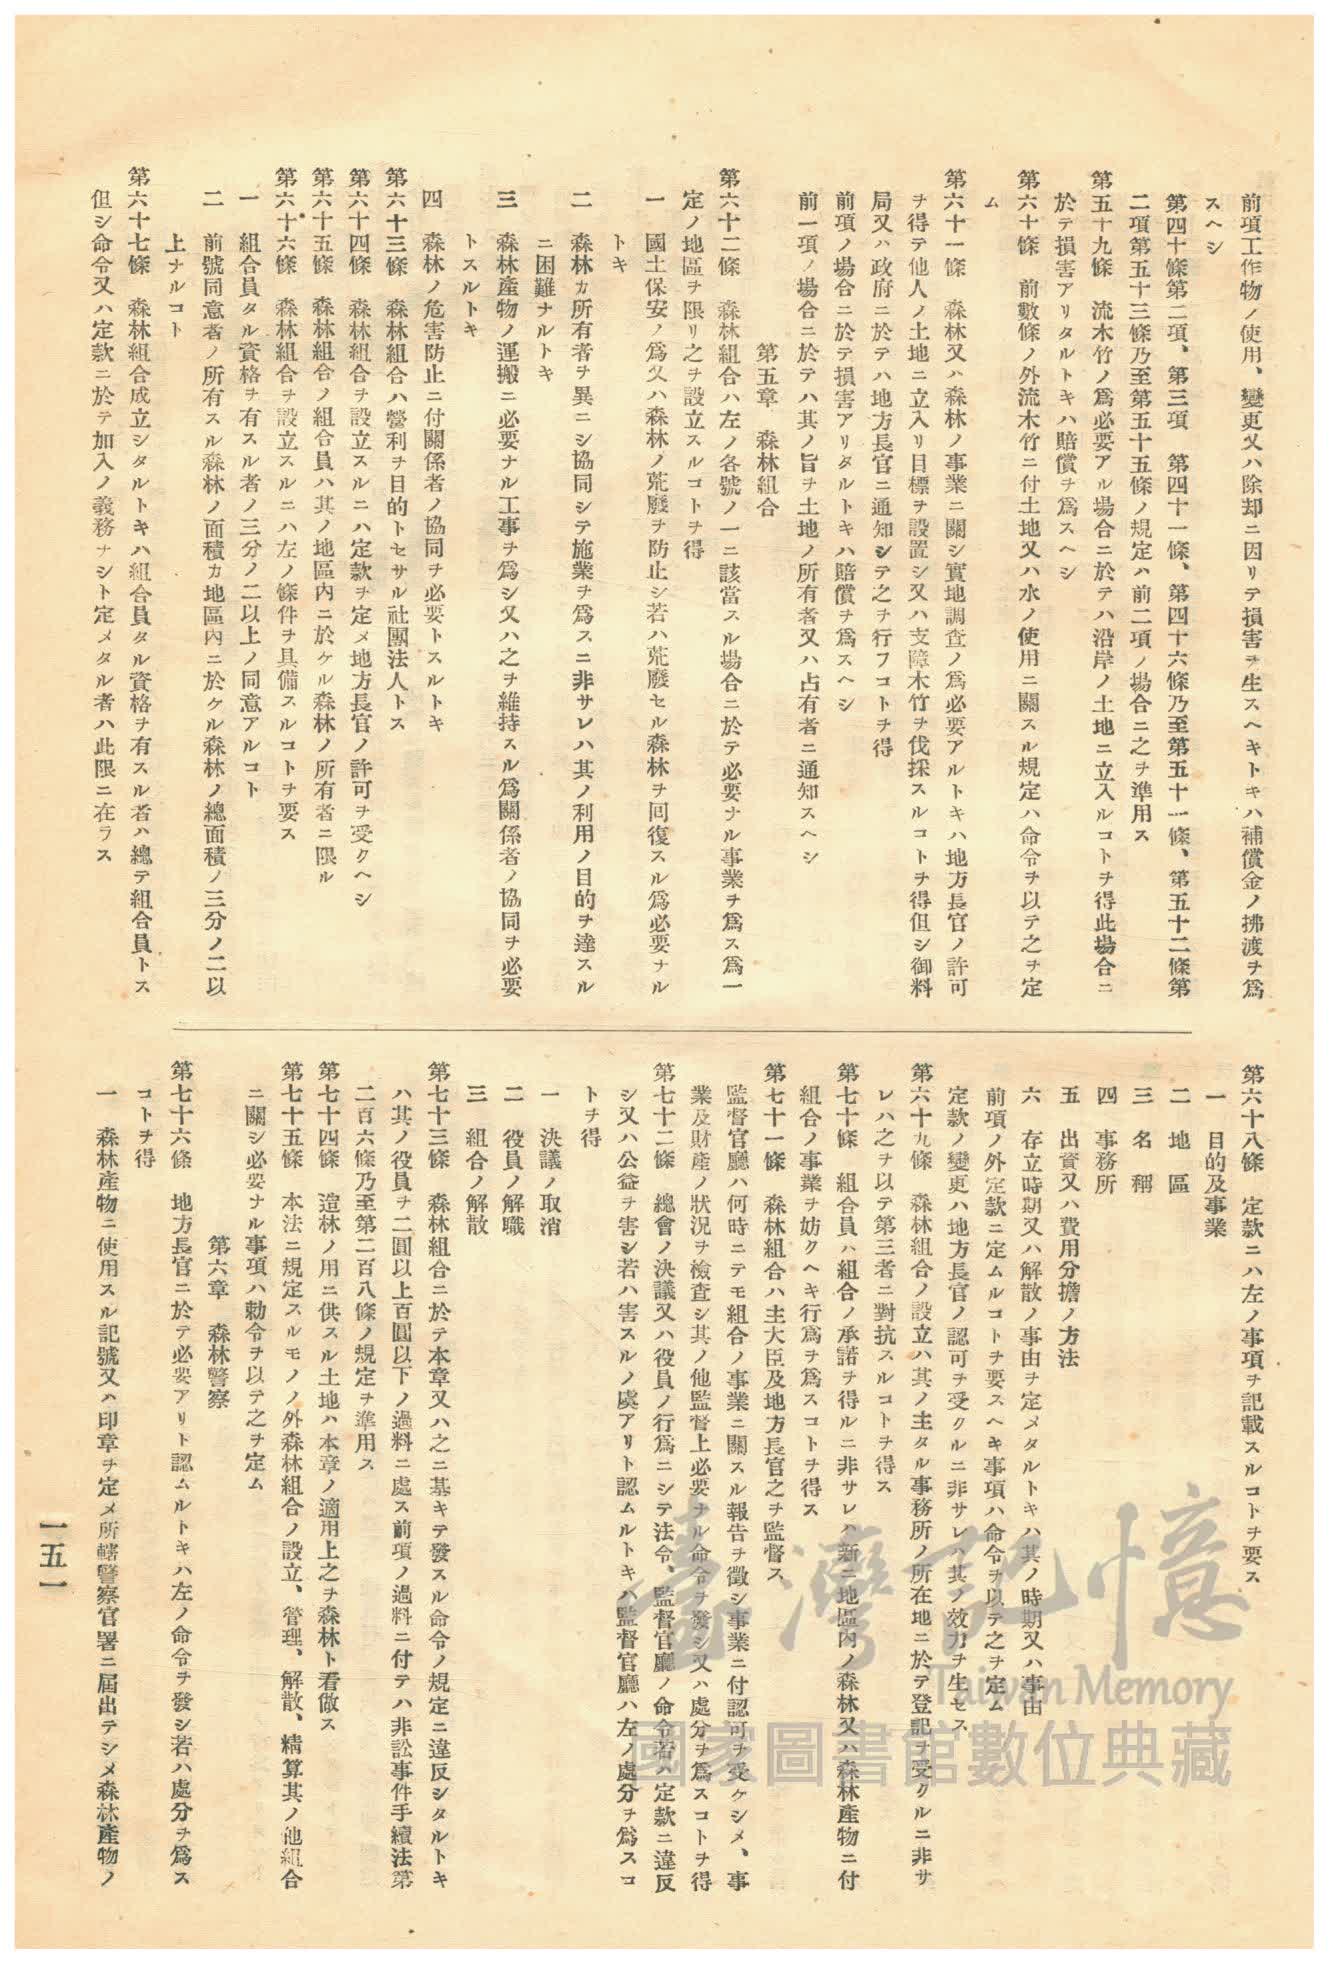 前項工作物ノ使用、變更又ハ除却ニ因リテ損害ヲ生スヘキトキハ補償金ノ拂渡ヲ爲
スヘシ
第四十條第二項、第三項　第四十一條、第四十六條乃至第五十一條、第五十二條第
二項第五十三條乃至第五十五條ノ規定ハ前二項ノ場合ニ之ヲ準用ス
第五十九條　流木竹ノ爲必要アル場合ニ於テハ沿岸ノ土地ニ立入ルコトヲ得此場合ニ
於テ損害アリタルトキハ賠償ヲ爲スヘシ
第六十條　前數條ノ外流木竹ニ付土地又ハ水ノ使用ニ關スル規定ハ命令ヲ以テ之ヲ定
ム
第六十一條　森林又ハ森林ノ事業ニ關シ實地調査ノ爲必要アルトキハ地方長官ノ許可
ヲ得テ他人ノ土地ニ立入リ目標ヲ設置シ又ハ支障木竹ヲ伐採スルコトヲ得但シ御料
局又ハ政府ニ於テハ地方長官ニ通知シテ之ヲ行フコトヲ得
前項ノ場合ニ於テ損害アリタルトキハ賠償ヲ爲スヘシ
前一項ノ場合ニ於テハ其ノ旨ヲ土地ノ所有者又ハ占有者ニ通知スヘシ
第五章　森林組合
第六十二條　森林組合ハ左ノ各號ノ一ニ該當スル場合ニ於テ必要ナル事業ヲ爲ス爲一
定ノ地區ヲ限リ之ヲ設立スルコトヲ得
一　國土保安ノ爲又ハ森林ノ荒廢ヲ防止シ若ハ荒廢セル森林ヲ回復スル爲必要ナル
トキ
二　森林カ所有者ヲ異ニシ協同シテ施業ヲ爲スニ非サレハ其ノ利用ノ目的ヲ達スル
ニ困難ナルトキ
三　森林產物ノ運搬ニ必要ナル工事ヲ爲シ又ハ之ヲ維持スル爲關係者ノ協同ヲ必要
トスルトキ
四　森林ノ危害防止ニ付關係者ノ協同ヲ必要トスルトキ
第六十三條　森林組合ハ營利ヲ目的トセサル社團法人トス
第六十四條　森林組合ヲ設立スルニハ定款ヲ定メ地方長官ノ許可ヲ受クヘシ
第六十五條　森林組合ノ組合員ハ其ノ地區内ニ於ケル森林ノ所有者ニ限ル
第六十六條　森林組合ヲ設立スルニハ左ノ條件ヲ具備スルコトヲ要ス
一　組合員タル資格ヲ有スル者ノ三分ノ二以上ノ同意アルコト
二　前號同意者ノ所有スル森林ノ面積カ地區内ニ於ケル森林ノ總面積ノ三分ノ二以
上ナルコト
第六十七條　森林組合成立シタルトキハ組合員タル資格ヲ有スル者ハ總テ組合員トス
但シ命令又ハ定款ニ於テ加入ノ義務ナシト定メタル者ハ此限ニ在ラス
第六十八條　定款ニハ左ノ事項ヲ記載スルコトヲ要ス
一　目的及事業
二　地　區
三　名　稱
四　事務所
五　出資又ハ費用分擔ノ方法
六　存立時期又ハ解散ノ事由ヲ定メタルトキハ其ノ時期又ハ事由
前項ノ外定款ニ定ムルコトヲ要スヘキ事項ハ命令ヲ以テ之ヲ定ム
定款ノ變更ハ地方長官ノ認可ヲ受クルニ非サレハ其ノ效力ヲ生セス
第六十九條　森林組合ノ設立ハ其ノ主タル事務所ノ所在地ニ於テ登記ヲ受クルニ非サ
レハ之ヲ以テ第三者ニ對抗スルコトヲ得ス
第七十條　組合員ハ組合ノ承諾ヲ得ルニ非サレハ新ニ地區内ノ森林又ハ森林產物ニ付
組合ノ事業ヲ妨クヘキ行爲ヲ爲スコトヲ得ス
第七十一條　森林組合ハ主大臣及地方長官之ヲ監督ス
監督官廳ハ何時ニテモ組合ノ事業ニ關スル報告ヲ徵シ事業ニ付認可ヲ受ケシメ、事
業及財產ノ狀況ヲ檢查シ其ノ他監督上必要ナル命令ヲ發シ又ハ處分ヲ爲スコトヲ得
第七十二條　總會ノ決議又ハ役員ノ行爲ニシテ法令、監督官廳ノ命令若ハ定款ニ違反
シ又ハ公益ヲ害シ若ハ害スルノ虞アリト認ムルトキハ監督官廳ハ左ノ處分ヲ爲スコ
トヲ得
一　決議ノ取消
二　役員ノ解職
三　組合ノ解散
第七十三條　森林組合ニ於テ本章又ハ之ニ基キテ發スル命令ノ規定ニ違反シタルトキ
ハ其ノ役員ヲ二圓以上百圓以下ノ過料ニ處ス前項ノ過料ニ付テハ非訟事件手續法第
二百六條乃至第二百八條ノ規定ヲ準用ス
第七十四條　造林ノ用ニ供スル土地ハ本章ノ適用上之ヲ森林ト看做ス
第七十五條　本法ニ規定スルモノノ外森林組合ノ設立、管理、解散、精算其ノ他組合
ニ關シ必要ナル事項ハ勅令ヲ以テ之ヲ定ム
第六章　森林警察
第七十六條　地方長官ニ於テ必要アリト認ムルトキハ左ノ命令ヲ發シ若ハ處分ヲ爲ス
コトヲ得
一　森林產物ニ使用スル記號又ハ印章ヲ定メ所轄警察官署ニ屆出テシメ森林產物ノ
一五一
臺灣記憶
Taiwan Memory
國家圖書館數位典藏